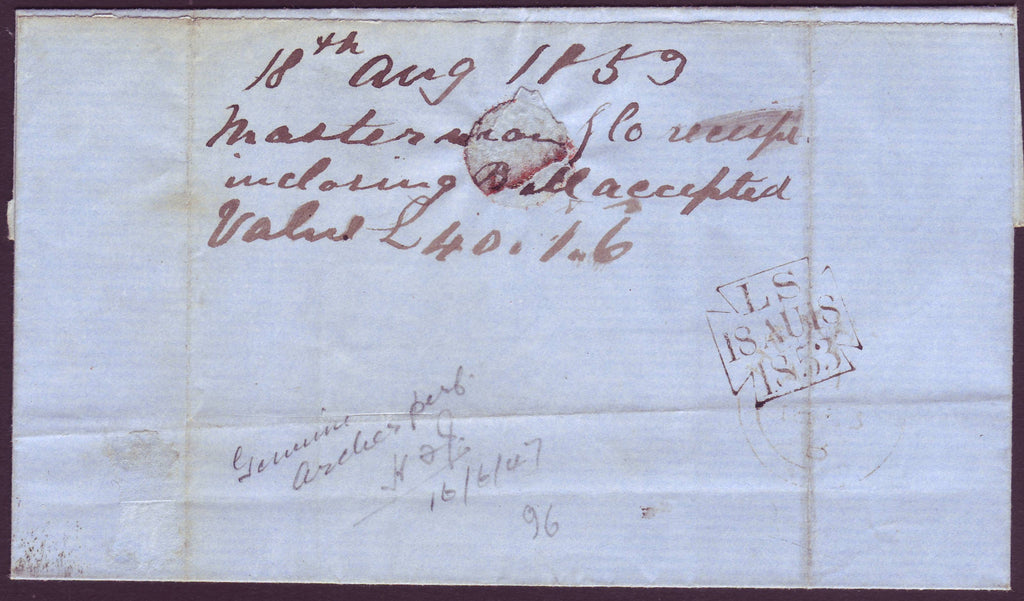 18th Aug 1853
Masterman & Co receipt
inclosing Bill accepted
Value £40.1.6
LS
18 AU 18
1853
Genuine
Archer perf.
16/6/47
96